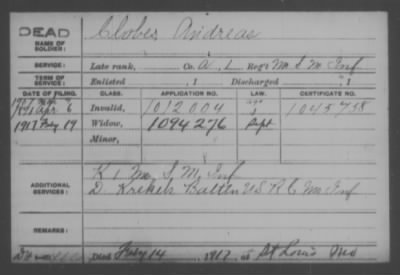 DEAD
NAME OF SOLDIER:
Clobes Andreas
SERVICE:
Late rank, Co. A. L. Reg't M S M Inf
TERM OF SERVICE:
Enlisted , 1 Discharged , 1
DATE OF FILING. CLASS. APPLICATION NO. LAW. CERTIFICATE NO.
1891 Apr. 6 Invalid, 1012004 1045758
1917 Feby 19 Widow, 1094276 Sept
Minor,
ADDITIONAL SERVICES:
K 1 Mo. S. M. Inf
D. Krekels Battn U S R C Mo Inf
REMARKS:
Died Feby 14 1917, at St Louis Mo